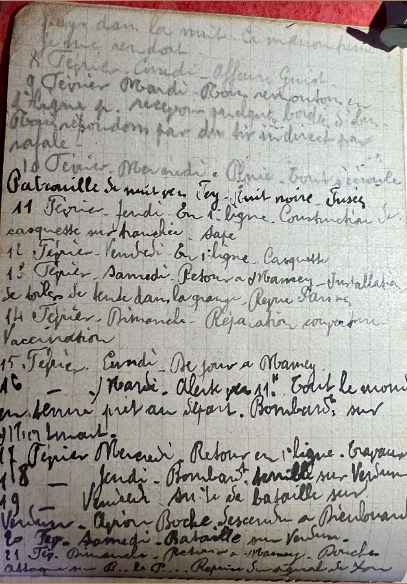 dans la nuit
je me rendort
8 Février Lundi - Affaire
9 Février Mardi - Nous remontons en
1e ligne recevons quelques bordées d'obus
Nous répondons par du tir indirect par
rafale -
10 Février Mercredi - Pluie Tout s'écroule
Patrouille de nuit vers Fey - Nuit noire - Fusées
11 Février - Jeudi - En 1e ligne - Construction de
casquesse sur tranchée - Sape
12 Février - Vendredi En 1e ligne - Casquette
13 Février - Samedi - Retour a Mamey - Installation
de toiles de tente dans la grange -
14 Février - Dimanche - Réparation
Vaccination
15 Févrie. Lundi - De jour a Mamey
16 - Mardi - Alerte vers 11h Tout le monde
en tenue pret au départ. Bombardt sur
17 Février Mercredi - Retour en 1e ligne - Travaux
18 - Jeudi - Bombardt sur Verdun
19 - Vendredi Suite de bataille sur
Verdun - Avion Boche descendu a
20 Fev. Samedi - Bataille sur Verdun -
21 Fev. Dimanche - Retour a Mamey - Boches
attaque sur B. le P... Reprise du signal de Xon